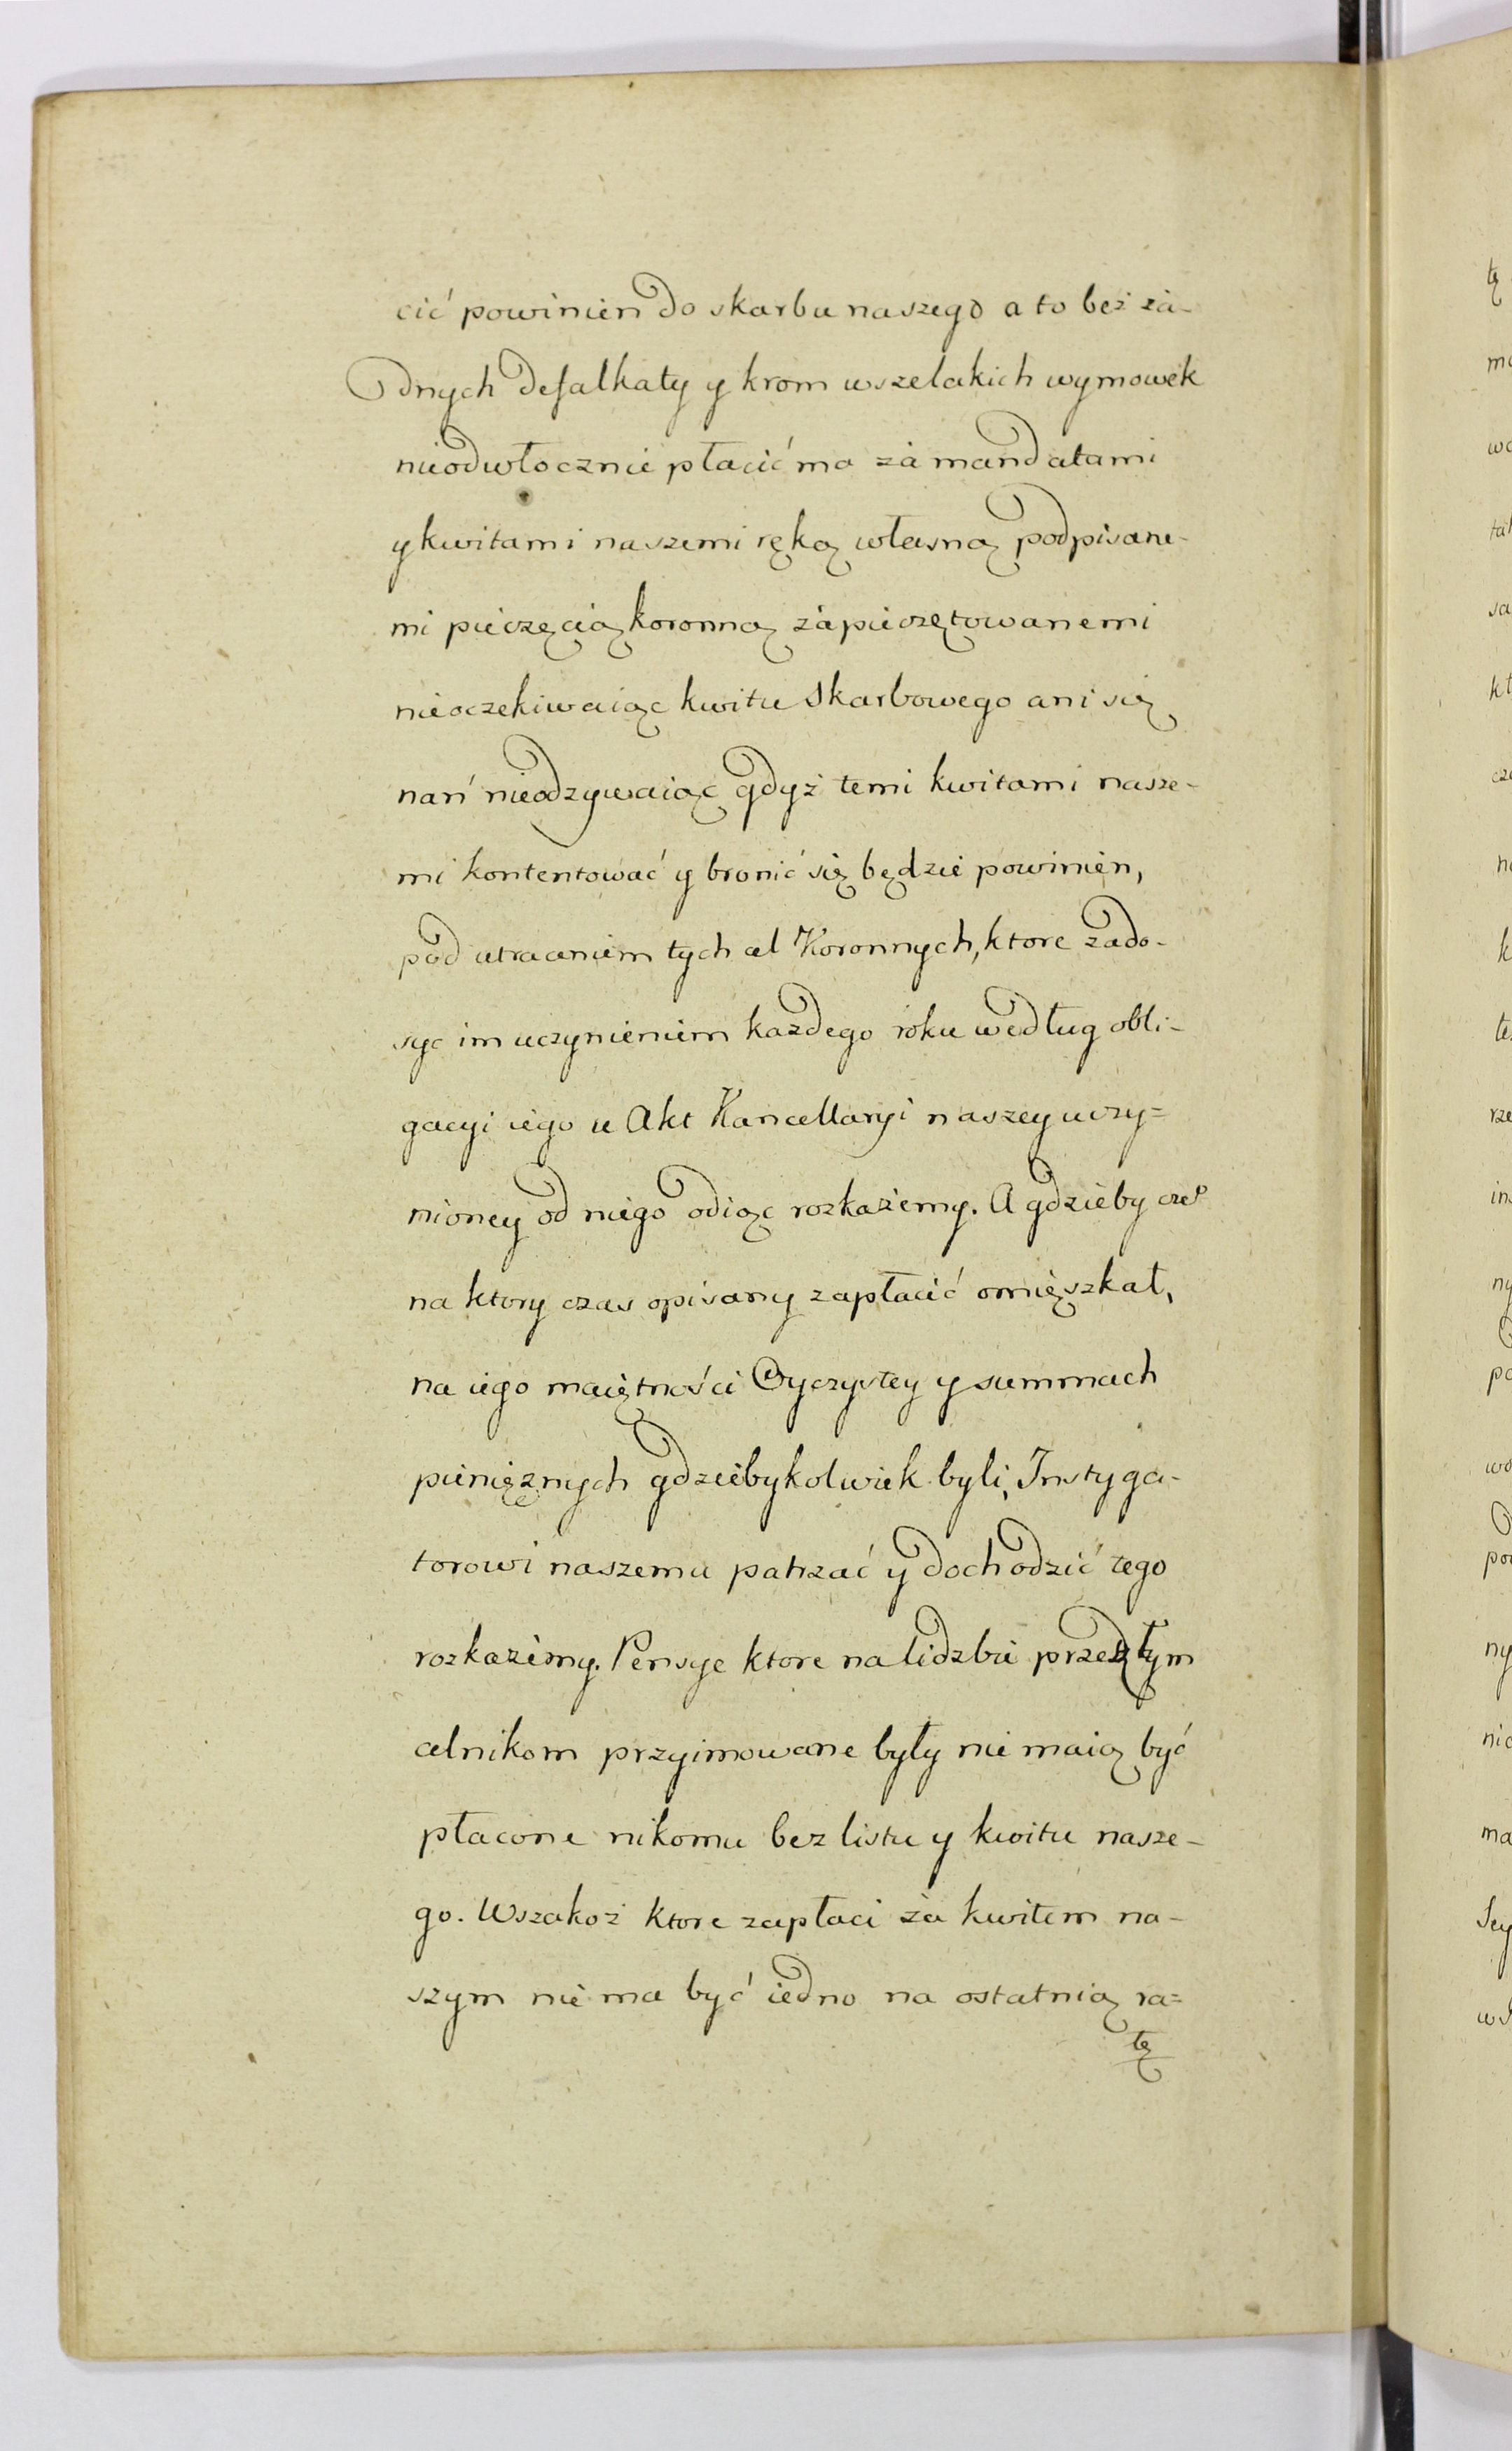 cić powinien do skarbu naszego a to bez ża-
dnych defalkaty y krom wszelakich wymowek
nieodwłocznie płacić ma za mandatami
y kwitami naszemi ręką własną podpisane-
mi pieczęcią koronną zapieczętowanemi
nieoczekiwaiąc kwitu skarbowego ani się
nań nieodzywaiąc gdyż temi kwitami nasze-
mi kontentować y bronić się będzie powinien,
pod utraceniem tych cel Koronnych, ktore zado-
syc im uczynieniem każdego roku według obli-
gacyi iego u Akt Kancellaryi naszey uczy=
nioney od niego odiąc rozkażemy. A gdzieby
na ktory czas opisany zapłacić omięszkał,
na iego maiętności Oyczystey y summach
pieniężnych gdziebykolwiek byli, Instyga-
torowi naszemu patrzać y dochodzić tego
rozkażemy. Pensye ktore na lidzbie przedtym
celnikom przyimowane były nie maią być
płacone nikomu bez listu y kwitu nasze-
go. Wszakoż ktore zapłaci za kwitem na-
szym nie ma być iedno na ostatnią ra=
tę